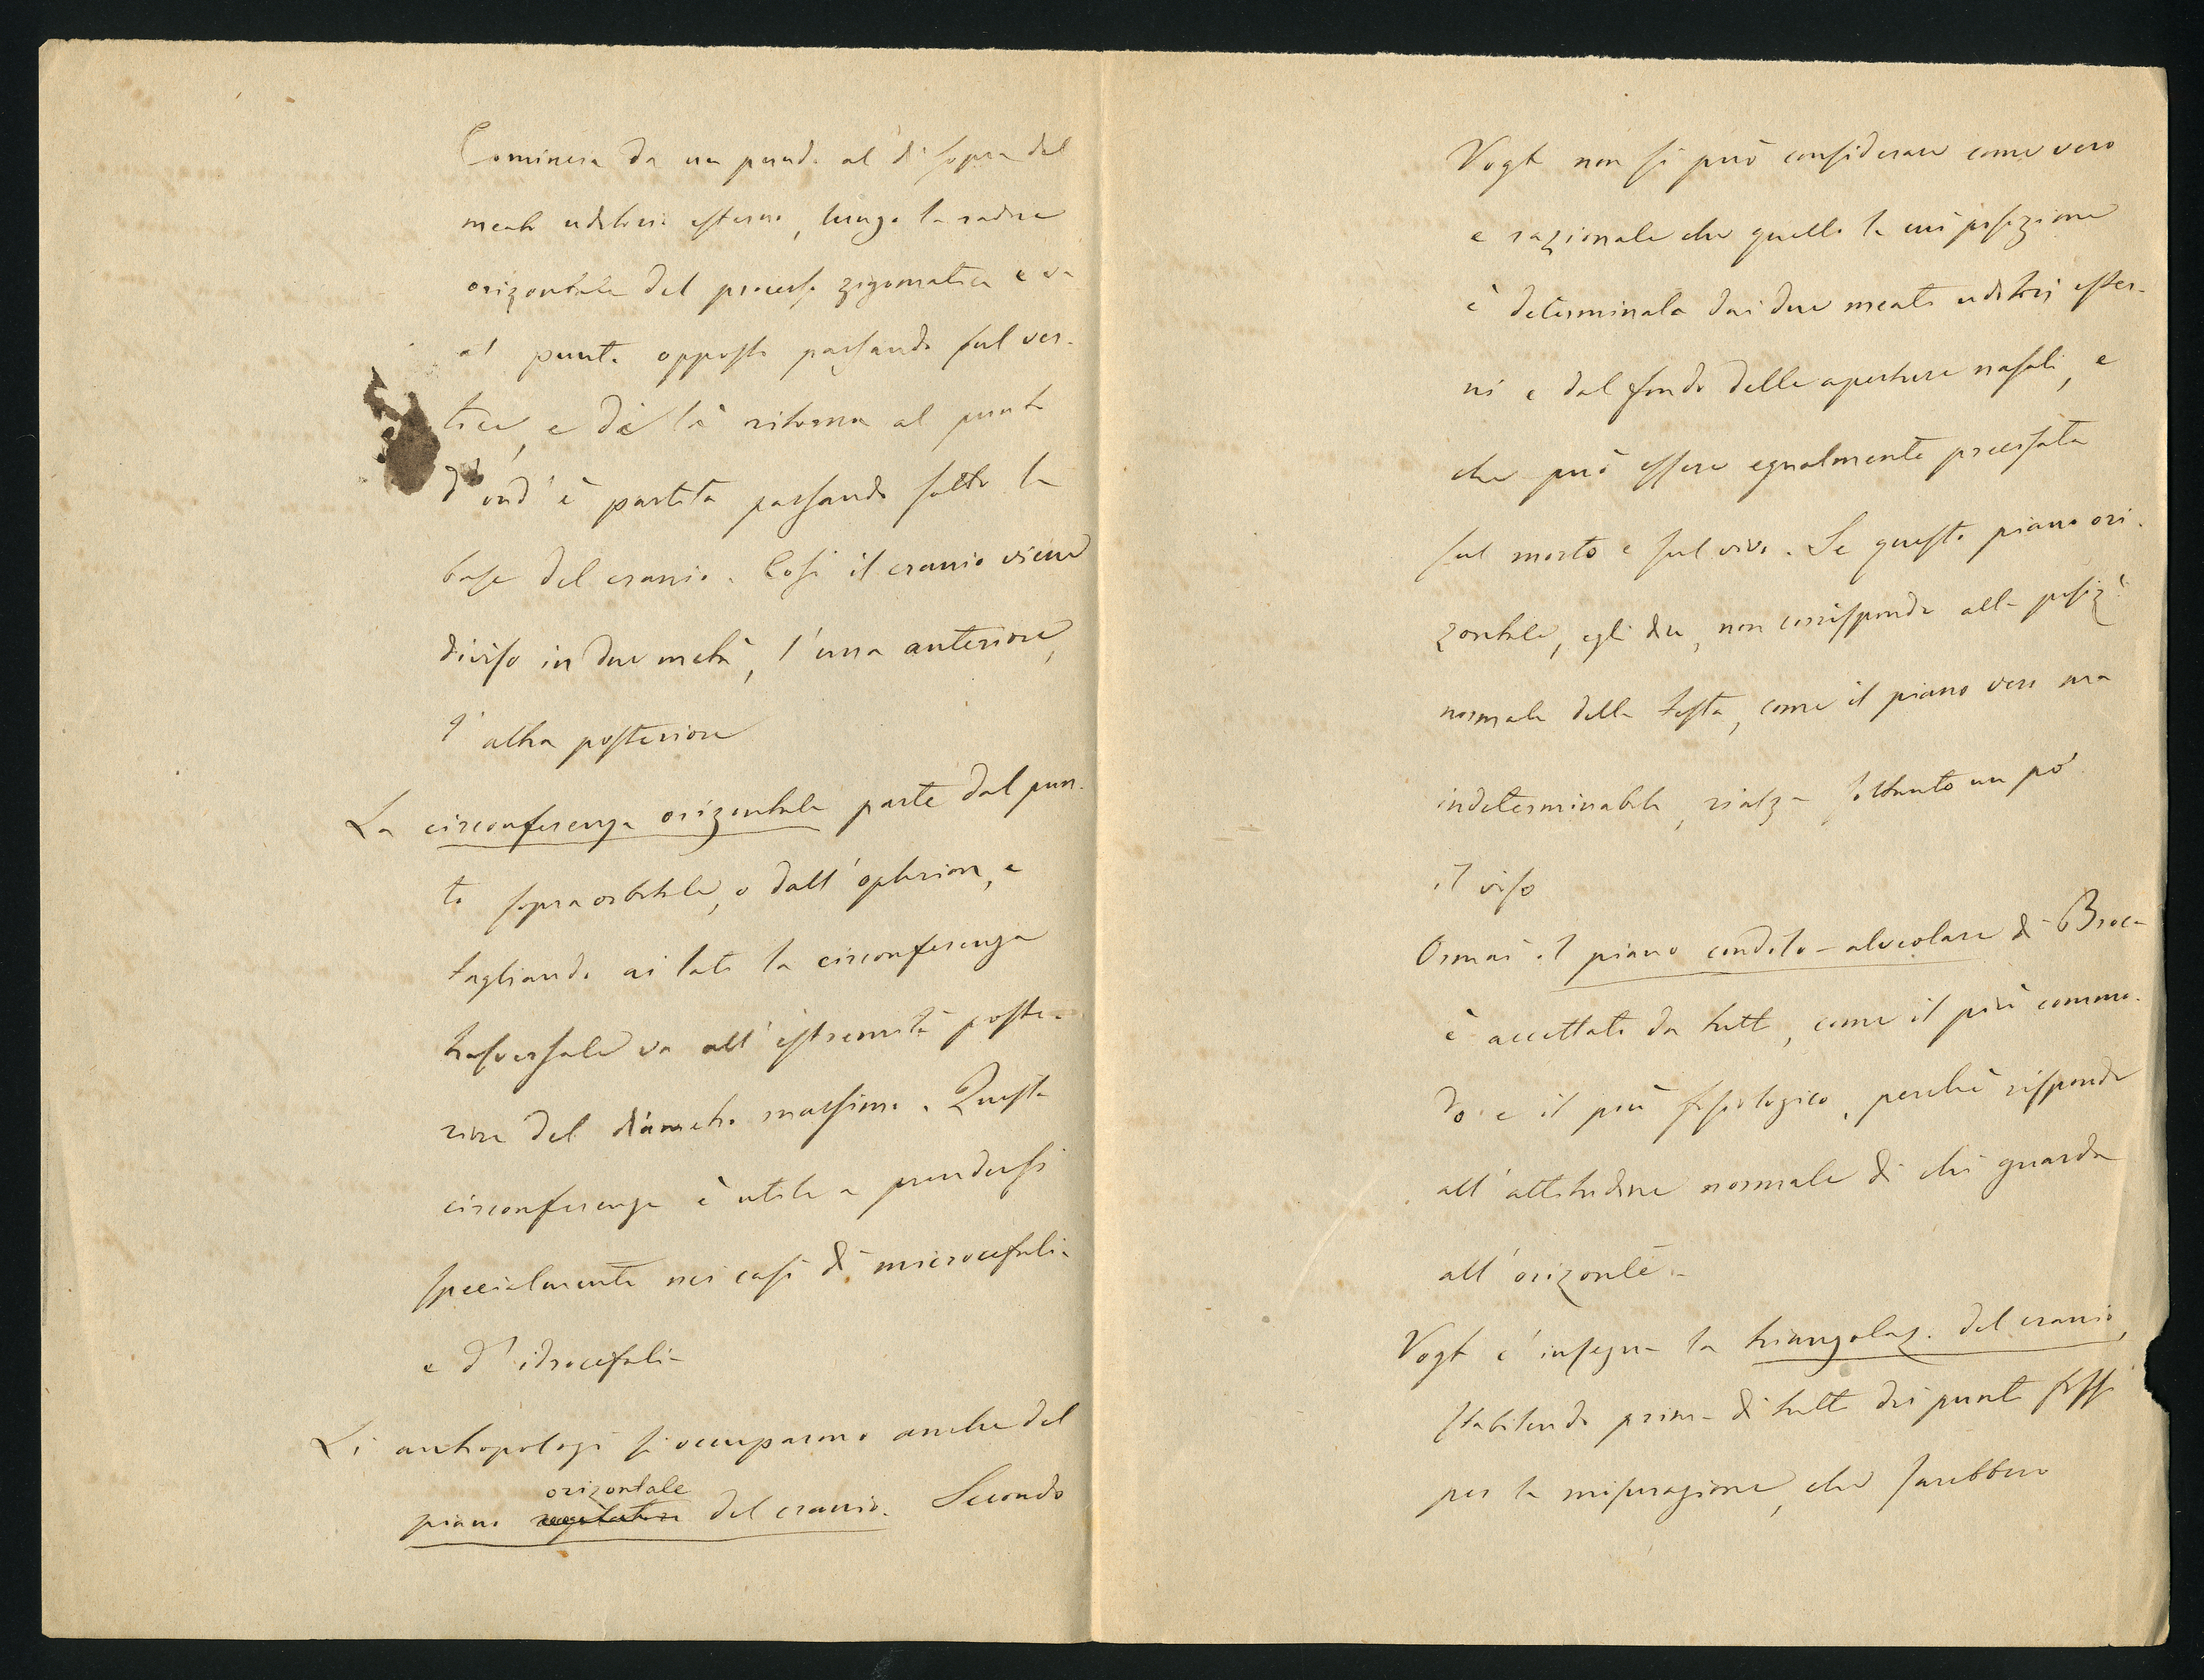 Comincia da un punto al di sopra del
meato uditorio esterno, lungo la radice
orizontale del processo zigomatico e va
al punto opposto passando sul ver-
tice, e di là ritorna al punto
d'ond'è partita passando sotto la
base del cranio. Così il cranio viene
diviso in due metà, l'una anteriore,
l'altra posteriore
La circonferenza orizontale parte dal pun-
to sopraorbitale, o dall'ophrion, e
tagliando ai lati la circonferenza
trasversale va all'estremità poste-
riore del diametro massimo. Questa
circonferenza è utile a prendersi
specialmente nei casi di microcefalia
e d'idrocefalia
Li antropologi si occuparono anche del
orizontale
piano del cranio. Secondo
Vogt non si può considerare come vero
e razionale che quello la cui posizione
è determinata dai due meati uditorj ester-
ni e dal fondo delle aperture nasali, e
che può essere egualmente precisata
sul morto e sul vivo. Se questo piano ori-
zontale, egli dice, non corrisponde alla posiz.
normale della testa, come il piano vero ma
indeterminabile, rialza soltanto un pò
il viso
Ormai il piano condilo-alveolare di Broca
è accettato da tutti, come il più commo-
do e il più fisiologico, perchè risponde
all'attitudine normale di chi guarda
all'orizonte.-
Vogt c'insegna la triangolaz. del cranio,
stabilendo prima di tutto dei punti fissi
per la misurazione, che sarebbero